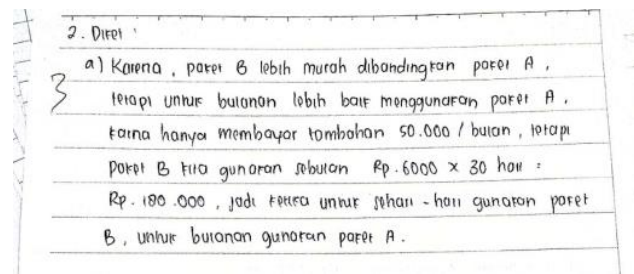 2. Diket :
a) Karena, paket B lebih murah dibandingkan paket A,
3
tetapi untuk bulanan lebih baik menggunakan paket A.
karna hanya membayar tambahan 50.000 / bulan, tetapi
paket B kita gunakan sebulan Rp. 6000 x 30 hari =
Rp. 180.000, jadi ketika untuk sehari-hari gunakan paket
B, untuk bulanan gunakan paket A.